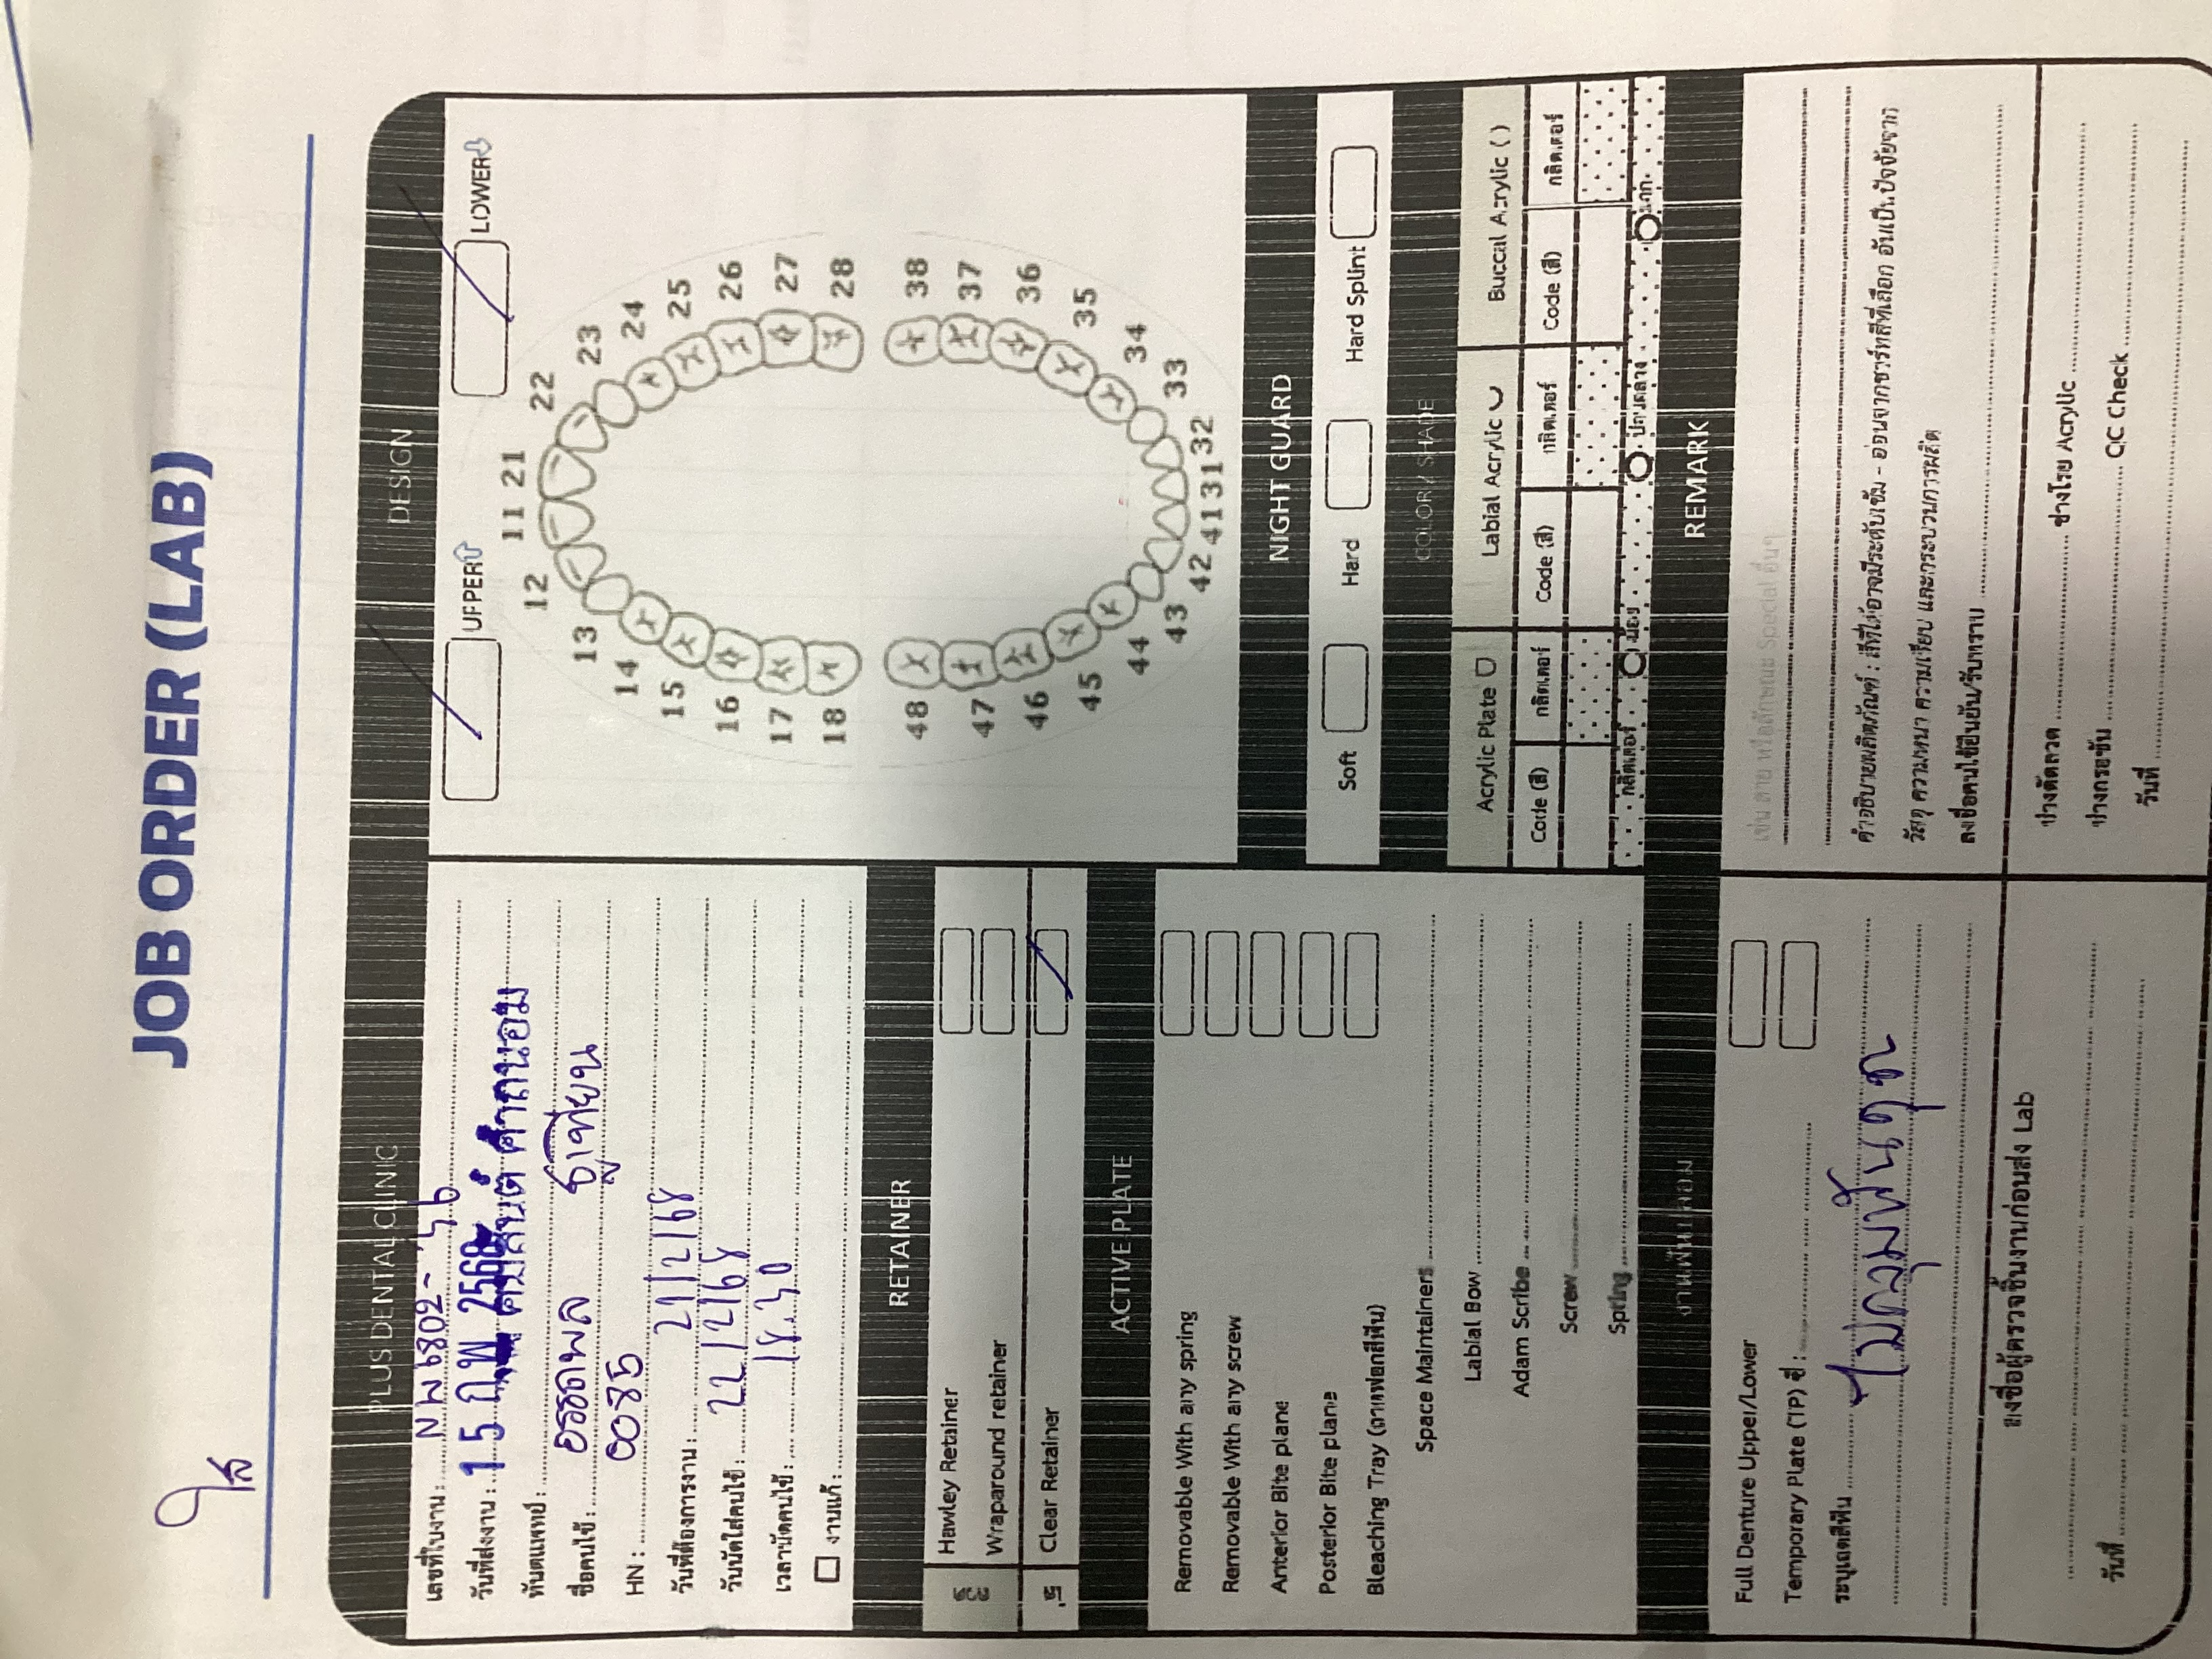 JOB ORDER (LAB)
ใส
PLUS DENTAL CLINIC
เลขที่ใบงาน : NW6802-36
วันที่ส่งงาน : 15 ก.พ. 2568
ทันตแพทย์ : คมสันต์ คำถนอม
ชื่อคนไข้ : อรรถพล ธูเทียน
HN : 0085
วันที่ต้องการงาน : 21/2/68
วันนัดใส่คนไข้ : 22/2/68
เวลานัดคนไข้ : 18.30
งานแก้ :
RETAINER
ลวด
Hawley Retainer
Wraparound retainer
ใส
Clear Retainer
ACTIVE PLATE
Removable With any spring
Removable With any screw
Anterior Bite plane
Posterior Bite plane
Bleaching Tray (ถาดฟอกสีฟัน)
Space Maintainers
Labial Bow
Adam Scribe
Screw
Spring
งานฟันปลอม
Full Denture Upper/Lower
Temporary Plate (TP) ซี่ :
ระบุเฉดสีฟัน
ไม่คลุมฟันคุด
ลงชื่อผู้ตรวจชิ้นงานก่อนส่ง Lab
วันที่
DESIGN
UPPER LOWER
11 21
12 22
13 23
14 24
15 25
16 26
17 27
18 28
48 38
47 37
46 36
45 35
44 34
43 33
42 41 31 32
NIGHT GUARD
Soft Hard Hard Splint
COLOR / SHADE
Acrylic Plate Labial Acrylic Buccal Acrylic ( )
Code (สี) กลิตเตอร์ Code (สี) กลิตเตอร์ Code (สี) กลิตเตอร์
กลิตเตอร์ น้อย ปานกลาง มาก
REMARK
เช่น ลาย หรือลักษณะ Special อื่นๆ
คำอธิบายผลิตภัณฑ์ : สีที่ได้อาจมีระดับเข้ม - อ่อนจากชาร์ทสีที่เลือก อันเป็นปัจจัยจาก
วัสดุ ความหนา ความเรียบ และกระบวนการผลิต
ลงชื่อคนไข้ยืนยัน/รับทราบ
ช่างดัดลวด ช่างโรย Acrylic
ช่างกรอขัน QC Check
วันที่